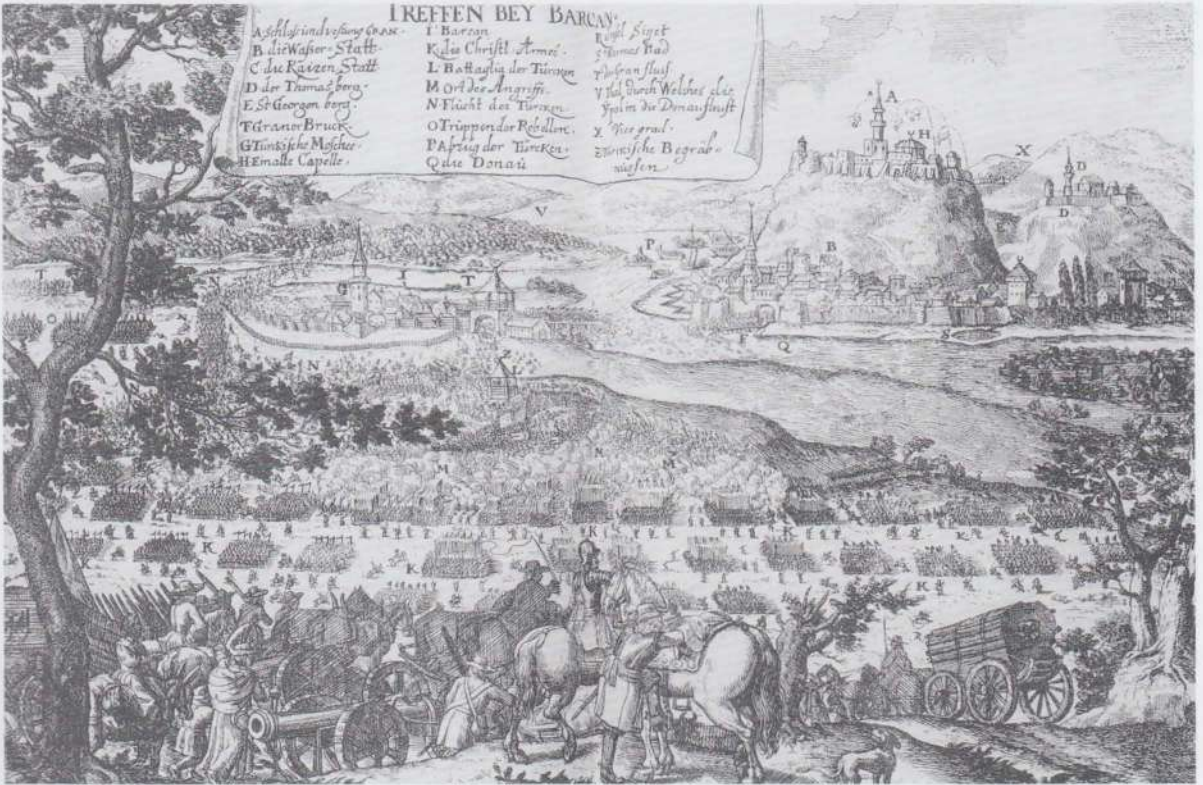 TREFFEN BEY BARCAN.
A. Schloß und vestung GRAN.
B die Waßer-Statt.
C. die Raizen Statt
D der Thomas berg.
E St Georgen berg.
F Graner Bruck.
G Türckische Moschee.
H Ein alte Capelle.
I Barcan
K die Christl. Armeé.
L Battaglia der Türcken
M Ort des Angriffs.
N Flücht der Türcken.
O Trüppen der Rebellen.
P Abzug der Türcken.
Q die Donaü
Siget
Bad
Gran fluß
V thal durch Welches die
in die Donau
X Vice grad.
Türckische Begräb-
nüssen
A
A
H
X
D
D
V
P
B
T
G
I
T
O
N
N
F
Q
S
Z
L
M
N
M
K
K
K
K
K